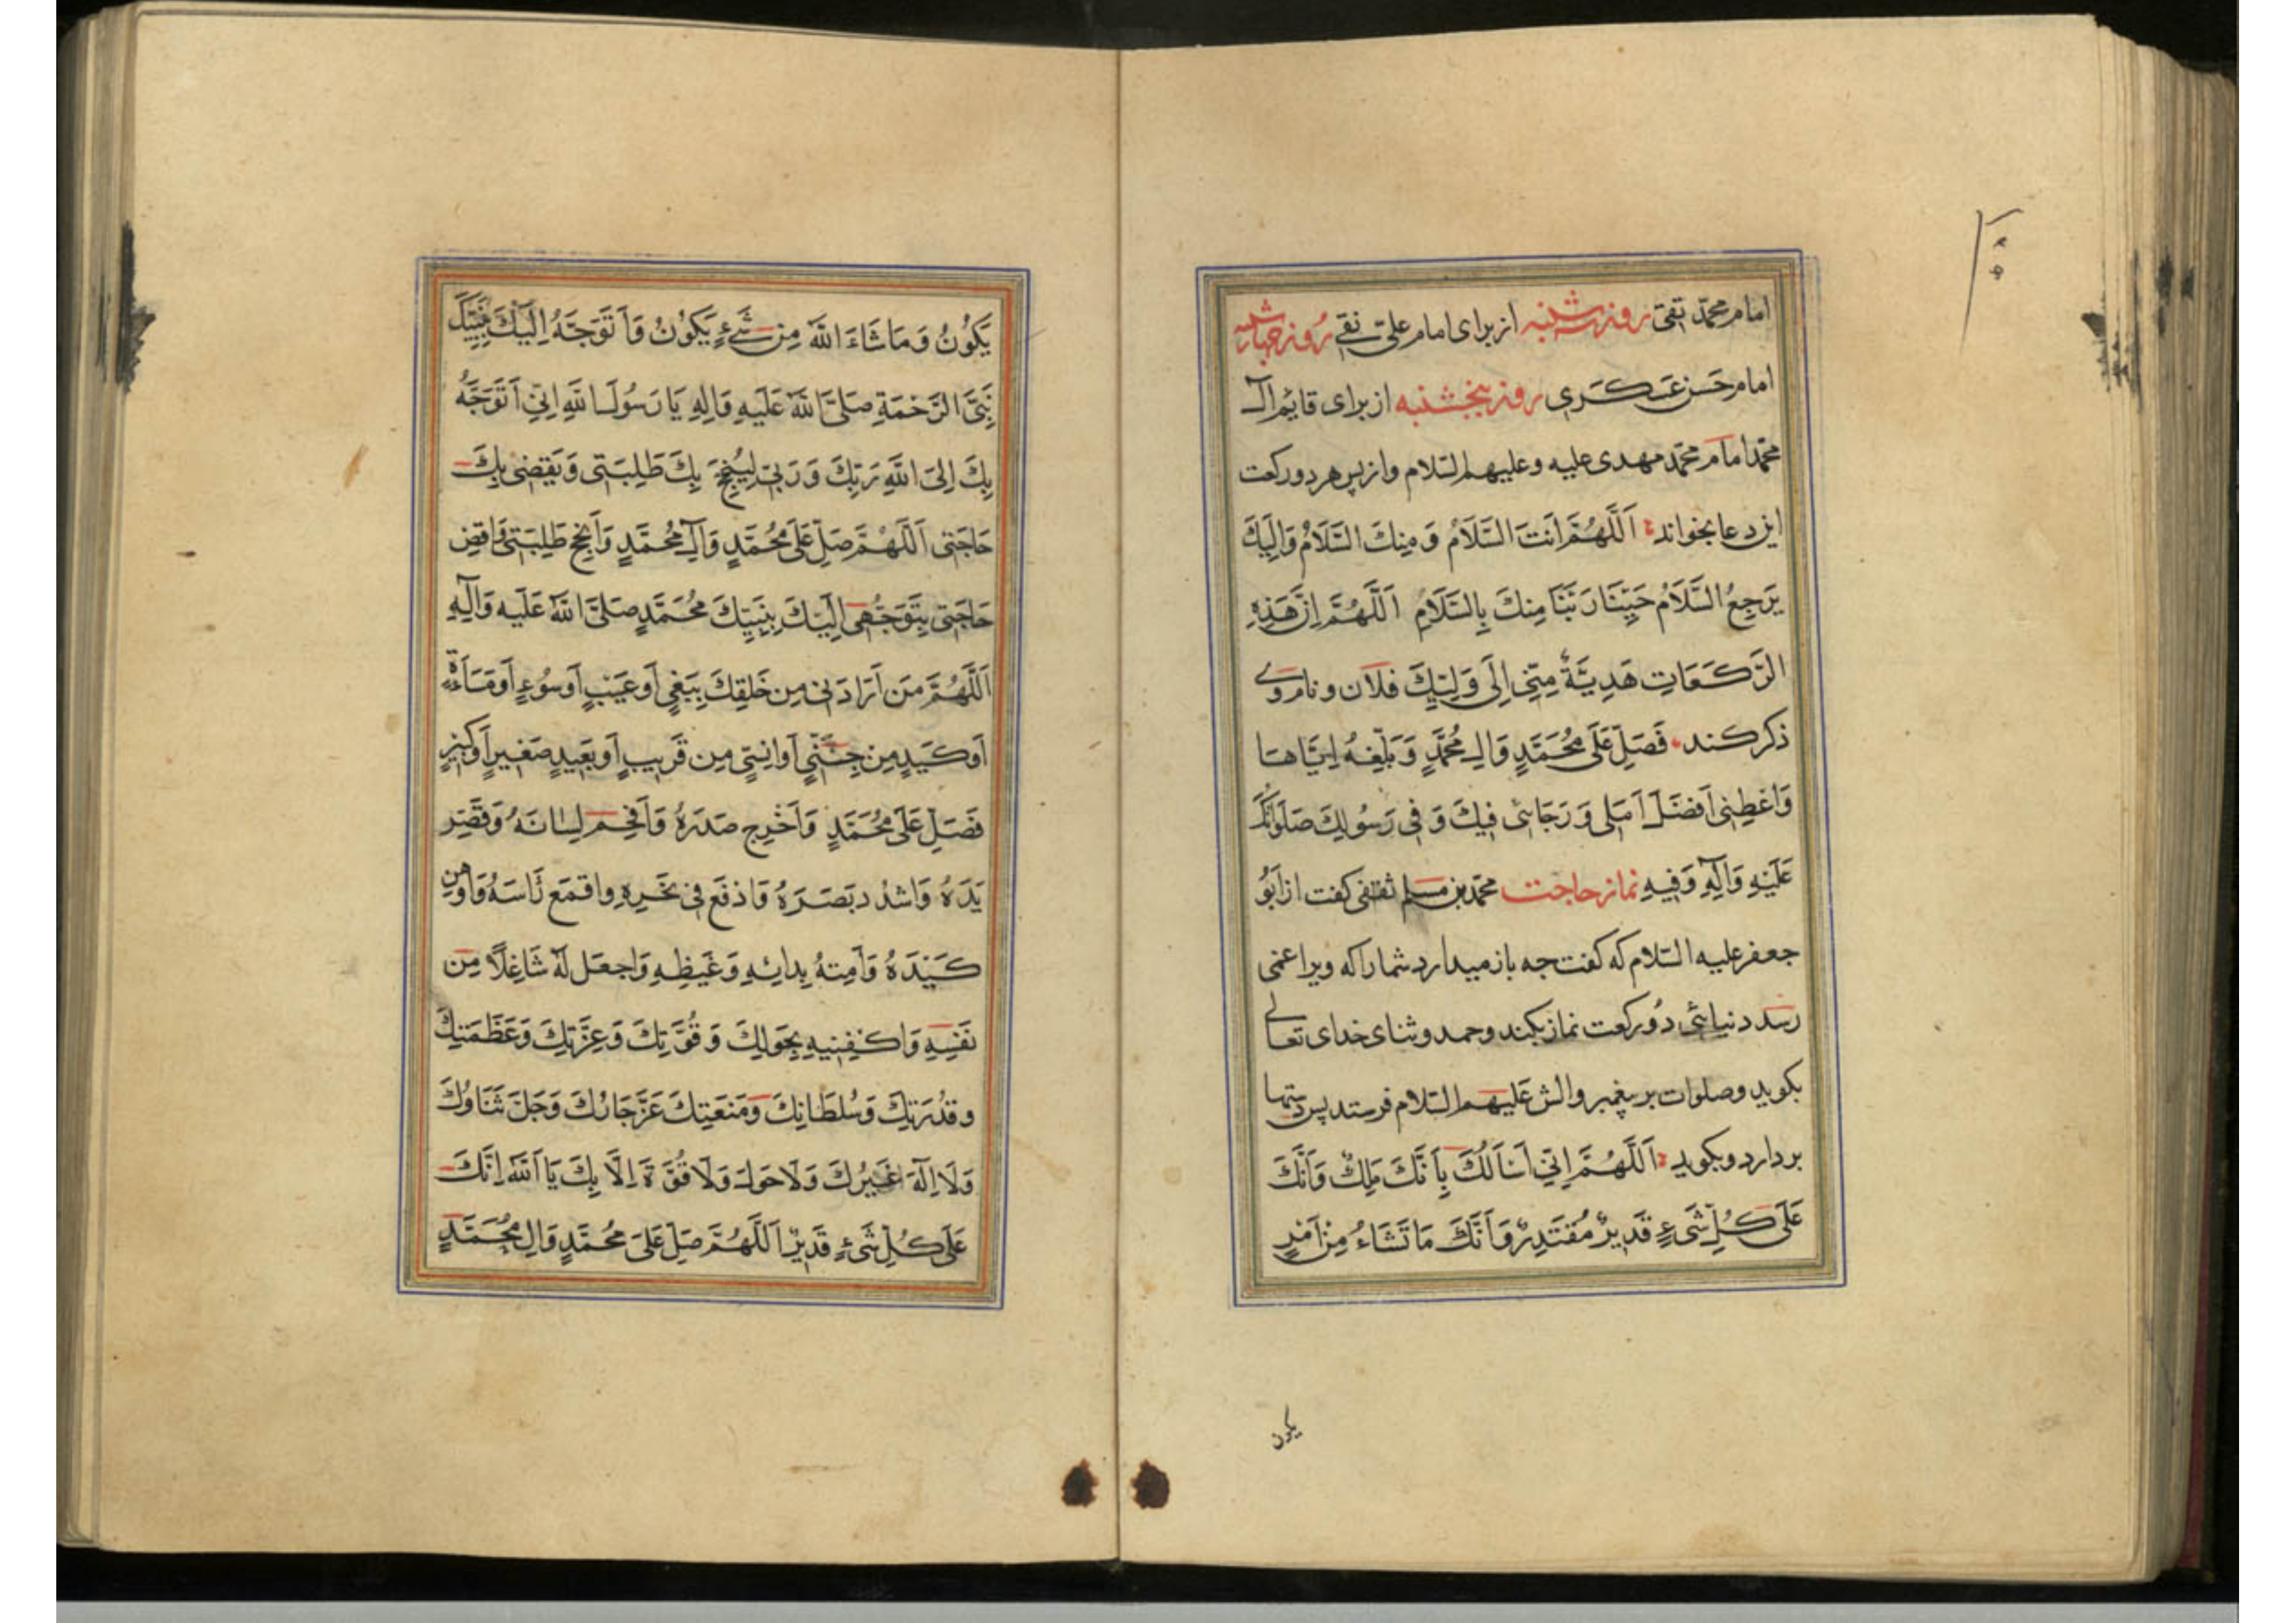 امام محمّد تقی روز سه شنبه از برای امام علیّ نقی روز چهارشنبه
امام حَسن عَسکَری روز پنجشنبه از برای قایم آل
محمّد امام محمّد مهدی علیه وعلیهم السّلام واز پس هر دو رکعت
این دعا بخواند اَللَّهُمَّ اَنتَ السَّلَامُ وَ مِنكَ السَّلَامُ وَاِلَیكَ
یَرجِعُ السَّلَامُ حَیِّنَا رَبَّنَا مِنكَ بِالسَّلَامِ اَللَّهُمَّ اِنَّ هَذِهِ
الرَّکَعَاتِ هَدِیَّةٌ مِنّی اِلَی وَلِیِّكَ فلان و نام وی
ذکر کند فَصَلِّ عَلَی مُحَمَّدٍ وَالِ مُحَمَّدٍ وَبَلِّغهُ اِیَّاهَا
وَاَعطِنِی اَفضَلَ اَمَلِی وَرَجَائی فِیكَ وَفِی رَسُولِكَ صَلَوَاتُكَ
عَلَیهِ وَآلِهِ وَفِیهِ نماز حاجت محمّد بن مسلم ثقفی کفت از اَبُو
جعفر علیه السّلام که کفت جه باز میدارد شما را که ویرا غمی
رسد دنیائی دُو رکعت نماز بکند وحمد وثنای خدای تعالی
بکوید وصلوات بر پیغمبر والش عَلیهم السّلام فرستد پس دستها
بردارد وبکوید اَللَّهُمَّ اِنِّی اَسْاَلُكَ بِاَنَّكَ مَلِكٌ وَاَنَّكَ
عَلَی کُلِّ شَیءٍ قَدِیرٌ مُقتَدِرٌ وَاَنَّكَ مَا تَشَاءُ مِن اَمرٍ
یکون
یَکُونُ وَمَا شَاءَ اللّهُ مِن شَیءٍ یَکُونُ وَاَتَوَجَّهُ اِلَیكَ بِنَبِیِّكَ
نَبِیِّ الرَّحمَةِ صَلَّی اللّهُ عَلَیهِ وَالِهِ یَا رَسُولَ اللّهِ اِنِّی اَتَوَجَّهُ
بِكَ اِلَی اللّهِ رَبِّكَ وَرَبِّی لِیُنجِحَ بِكَ طَلِبَتِی وَیَقضِی بِكَ
حَاجَتِی اَللَّهُمَّ صَلِّ عَلَی مُحَمَّدٍ وَآلِ مُحَمَّدٍ وَاَنجِح طَلِبَتِی وَاقضِ
حَاجَتِی بِتَوَجُّهِی اِلَیكَ بِنَبِیِّكَ مُحَمَّدٍ صَلَّی اللّهُ عَلَیهِ وَآلِهِ
اَللَّهُمَّ مَن اَرَادَنِی مِن خَلقِكَ بِبَغیٍ اَو عَیبٍ اَو سُوءٍ اَو مَسَاءَةٍ
اَو کَیدٍ مِن جِنّیٍّ اَو اِنسِیٍّ مِن قَرِیبٍ اَو بَعِیدٍ صَغِیرٍ اَو کَبِیرٍ
فَصَلِّ عَلَی مُحَمَّدٍ وَاَحرِج صَدرَهُ وَاَفحِم لِسَانَهُ وَقَصِّر
یَدَهُ وَاشدُد بَصَرَهُ وَادفَع فِی نَحرِهِ واقمَع رَاسَهُ وَاَوهِن
کَیدَهُ وَاَمِتهُ بِدَائِهِ وَغَیظِهِ وَاجعَل لَهُ شَاغِلًا مِن
نَفسِهِ وَاکفِنِیهِ بِحَولِكَ وَقُوَّتِكَ وَعِزَّتِكَ وَعَظَمَتِكَ
وقدُرَتِكَ وَسُلطَانِكَ وَمَنعَتِكَ عَزَّ جَارُكَ وَجَلَّ ثَنَاؤُكَ
وَلَا اِلَهَ غَیرُكَ وَلَا حَولَ وَلَا قُوَّةَ اِلَّا بِكَ یَا اَللّهُ اِنَّكَ
عَلَی کُلِّ شَیءٍ قَدِیرٌ اَللَّهُمَّ صَلِّ عَلَی مُحَمَّدٍ وَالِ مُحَمَّدٍ